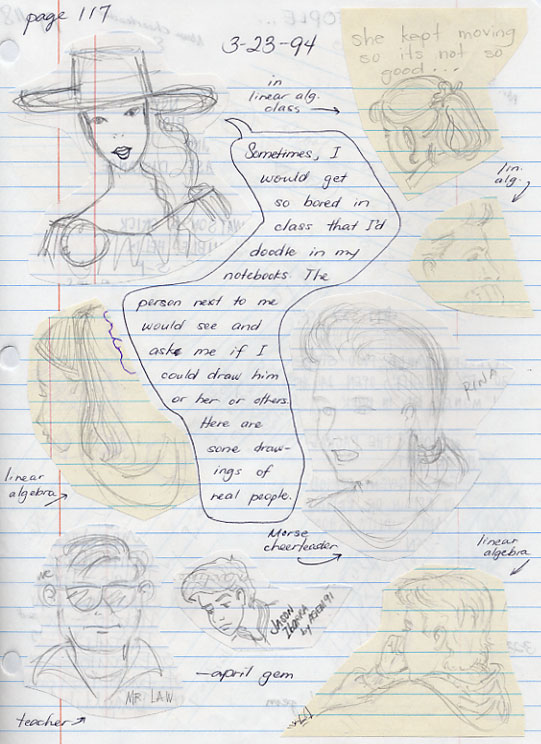 page 117
3-23-94
in
linear alg.
class
she kept moving
so its not so
good...
lin.
alg.
Sometimes, I
would get
so bored in
class that I'd
doodle in my
notebooks. The
person next to me
would see and
ask me if I
could draw him
or her or others.
Here are
some draw-
ings of
real people.
RINA
linear
algebra
Morse
cheerleader
linear
algebra
JASON
by
-april gem
MR LAW
teacher